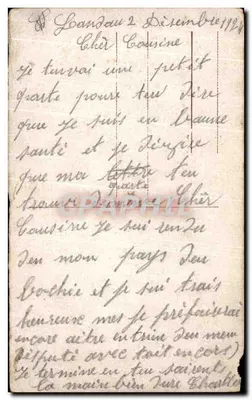 Landau 2 Disembre 192
Chèr Cousine
Je tenvoi une petit
carte poure teu dire
que je suis en baune
santé et je dézire
que ma lettre teu
carte
trouve de même Chèr
Cousine je sui rendu
deu mon pays deu
bochie et je sui trais
heureuse mes je préfairerai
encore aitre intrin deu mem
disputé avec toit encors)
Je termine en teu sairent
la main bien dure Charles